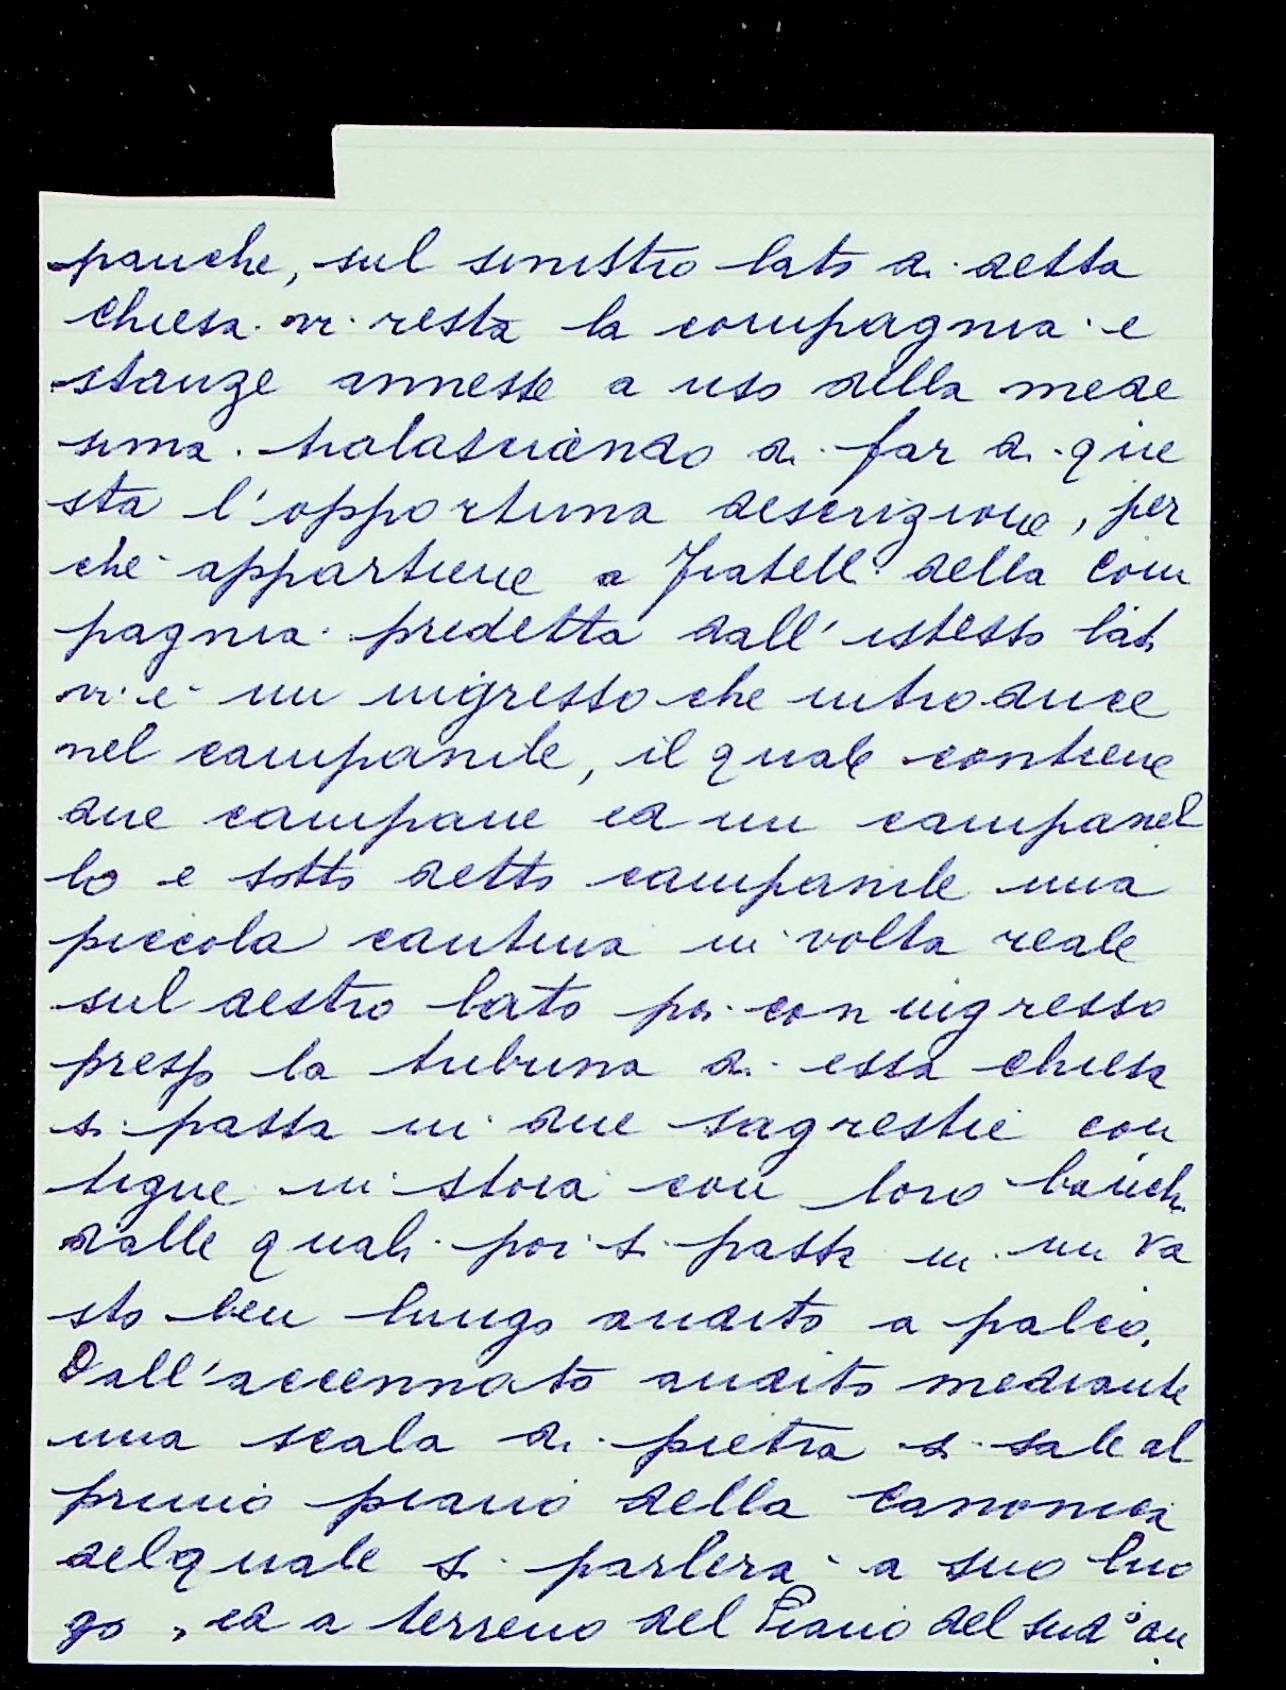 panche, sul sinistro lato di detta
chiesa vi resta la compagnia e
stanze annesse a uso della mede
sima. tralasciando di far di que
sta l'opportuna descrizione, per
chè appartiene a Fratelli della Com
pagnia predetta dall'istesso lato
vi è un ingresso che introduce
nel campanile, il quale contiene
due campane ed un campanel
lo e sotto detto campanile una
piccola cantina in volta reale
sul destro lato poi con ingresso
presso la tribuna di essa chiesa
si passa in due sagrestie con
tigue in stoia con loro banchi
dalle quali poi si passa in un va
sto ben lungo andito a palco.
Dall'accennato andito mediante
una scala di pietra si sale al
primo piano della Canonica
del quale si parlerà a suo luo
go, ed a terreno del Piano del sudo an